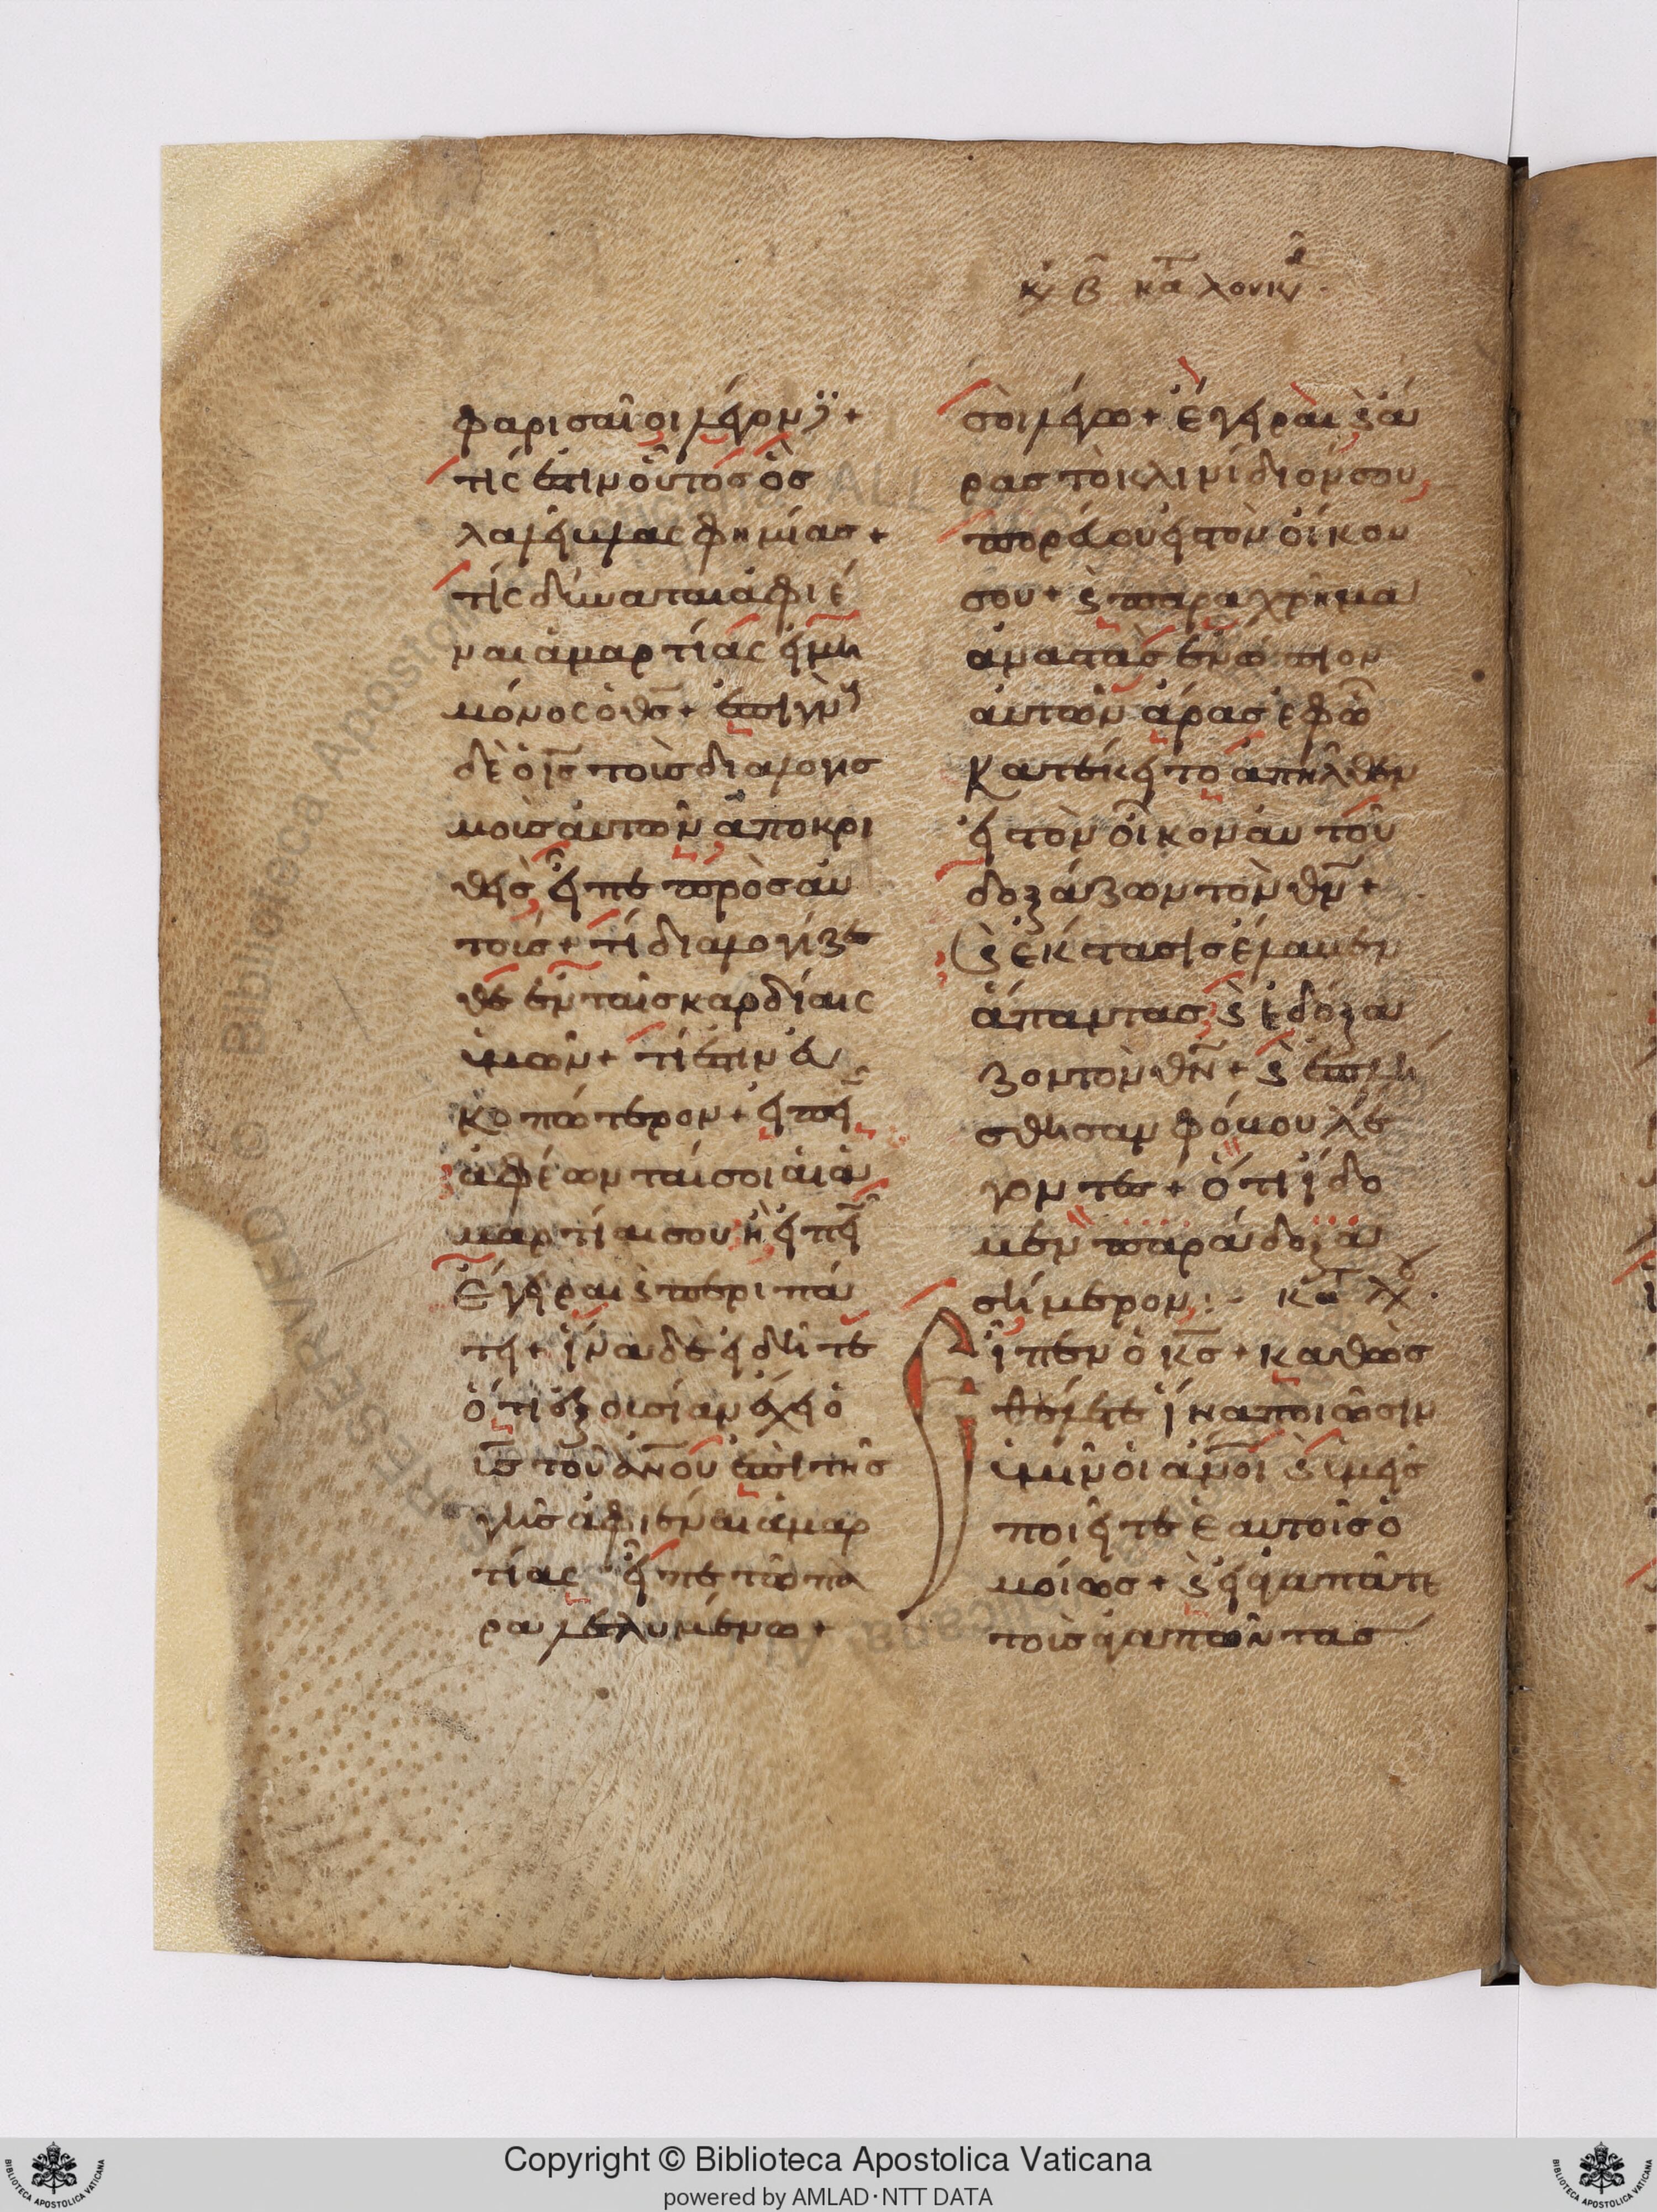 κυ β κατὰ λουκ
φαρισαῖοι λέγοντ +
τίς ἐστιν οὗτοσ ὃσ
λαλεῖ βλασφημίασ +
τίς δύναται ἀφιέ
ναι ἁμαρτίας εἰ μὴ
μόνος ὁ θσ + ἐπιγν
δὲ ὁ ισ τοὺσ διαλογισ
μοὺσ αὐτῶν ἀποκρι
θεὶσ εἶπε πρὸσ αὐ
τούσ + τί διαλογίζεσ
θε ἐν ταῖσ καρδίαις
ὑμῶν + τί ἐστιν εὐ
κοπώτερον + εἰπεῖ
ἀφέωνταί σοι αἱ ἁ
μαρτίαι σου ἢ εἰπεῖ
ἔγειραι ϛ περιπά
τει + ἵνα δὲ εἰδῆτε
ὅτι ἐξουσίαν ἔχει ὁ
ισ τοῦ ανου ἐπὶ τῆσ
γῆσ ἀφιέναι ἁμαρ
τίας εἶπε τῶ πα
ραλελυμένω +
σοὶ λέγω + ἔγειραι ϛ ἄ
ρασ τὸ κλινίδιόν σου
πορεύου εἰσ τὸν οἶκον
σου + ϛ παραχρῆμα
ἀναστὰσ ἐνώπιον
αὐτῶν ἄρασ ἐφ ὧ
κατέκειτο ἀπῆλθεν
εἰσ τὸν οἶκον αὐτοῦ
δοξάζων τὸν θν +
ϛ ἔκστασισ ἔλαβεν
ἅπαντασ ϛ ἐδόξα
ζον τὸν θν + ϛ ἐπλή
σθησαν φόβου λέ
γοντεσ + ὅτι ἴδο
μεν παράδοξα
σήμερον :- κατ λχ
Εἶπεν ὁ κσ + καθὼσ
θέλετε ἵνα ποιῶσιν
ὑμῖν οἱ ανοι ϛ ὑμεῖσ
ποιεῖτε ἑαυτοῖσ ὁ
μοίωσ + ϛ εἰ ἀγαπᾶτε
τοὺσ ἀγαπῶντασ
Copyright © Biblioteca Apostolica Vaticana
powered by AMLAD·NTT DATA